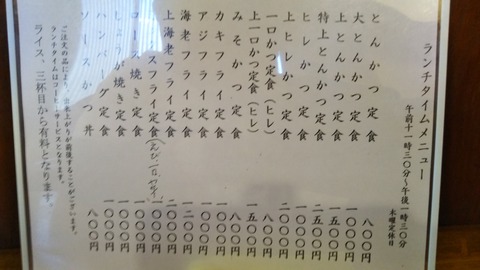 ランチタイムメニュー
午前十一時三〇分～午後一時三〇分
木曜定休日
とんかつ定食 八〇〇円
大とんかつ定食 一〇〇〇円
上とんかつ定食 一五〇〇円
特上とんかつ定食 二五〇〇円
ヒレかつ定食 一〇〇〇円
上ヒレかつ定食 二〇〇〇円
一口かつ定食(ヒレ) 八〇〇円
上一口かつ定食(ヒレ) 一五〇〇円
みそかつ定食 八〇〇円
カキフライ定食 一〇〇〇円
アジフライ定食
海老フライ定食 一二〇〇円
上海老フライ定食 二〇〇〇円
スフライ定食
ロース焼き定食 一〇〇〇円
しょうが焼き定食 一〇〇〇円
ハンバーグ定食 一〇〇〇円
ソースかつ丼 八〇〇円
ご注文の品により、出来上がりが前後することがございます。
ランチタイムはコーヒーサービスとなります。
ライス、三杯目から有料となります。